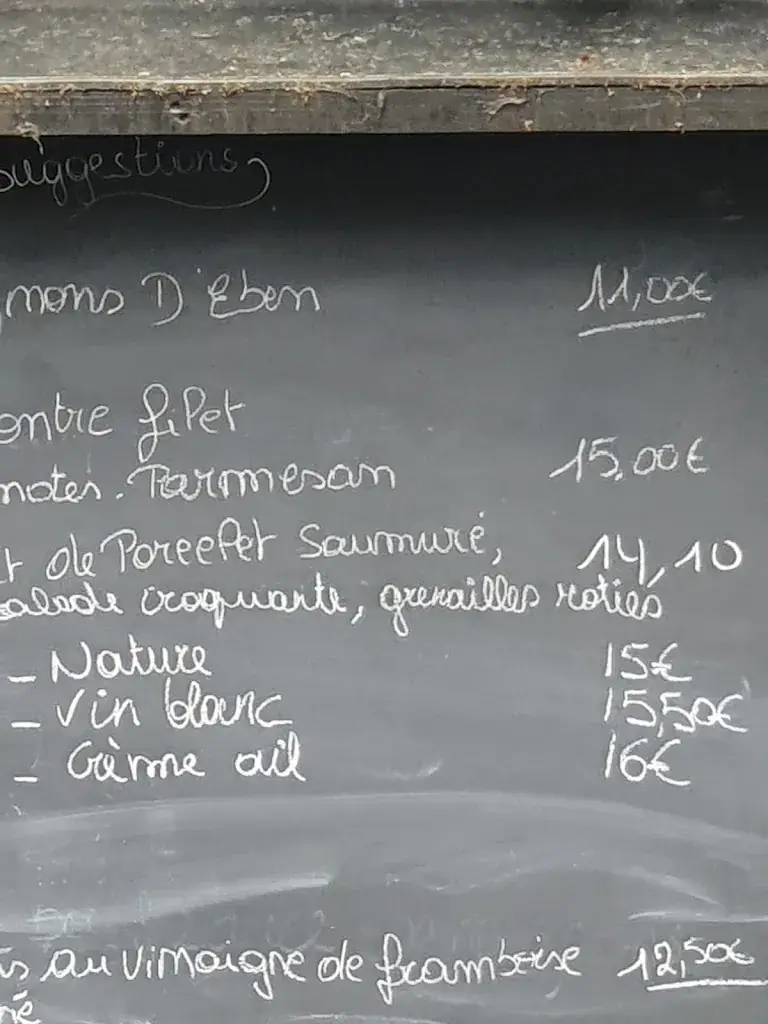 suggestions
mons D'Eben 11,00€
ontre filet
motes. Parmesan 15.00€
t de Porcelet Saumuré, 14,10
salade croquante, grenailles roties
- Nature 15€
- Vin blanc 15,50€
- Crème ail 16€
is au vinaigre de framboise 12,50€
né